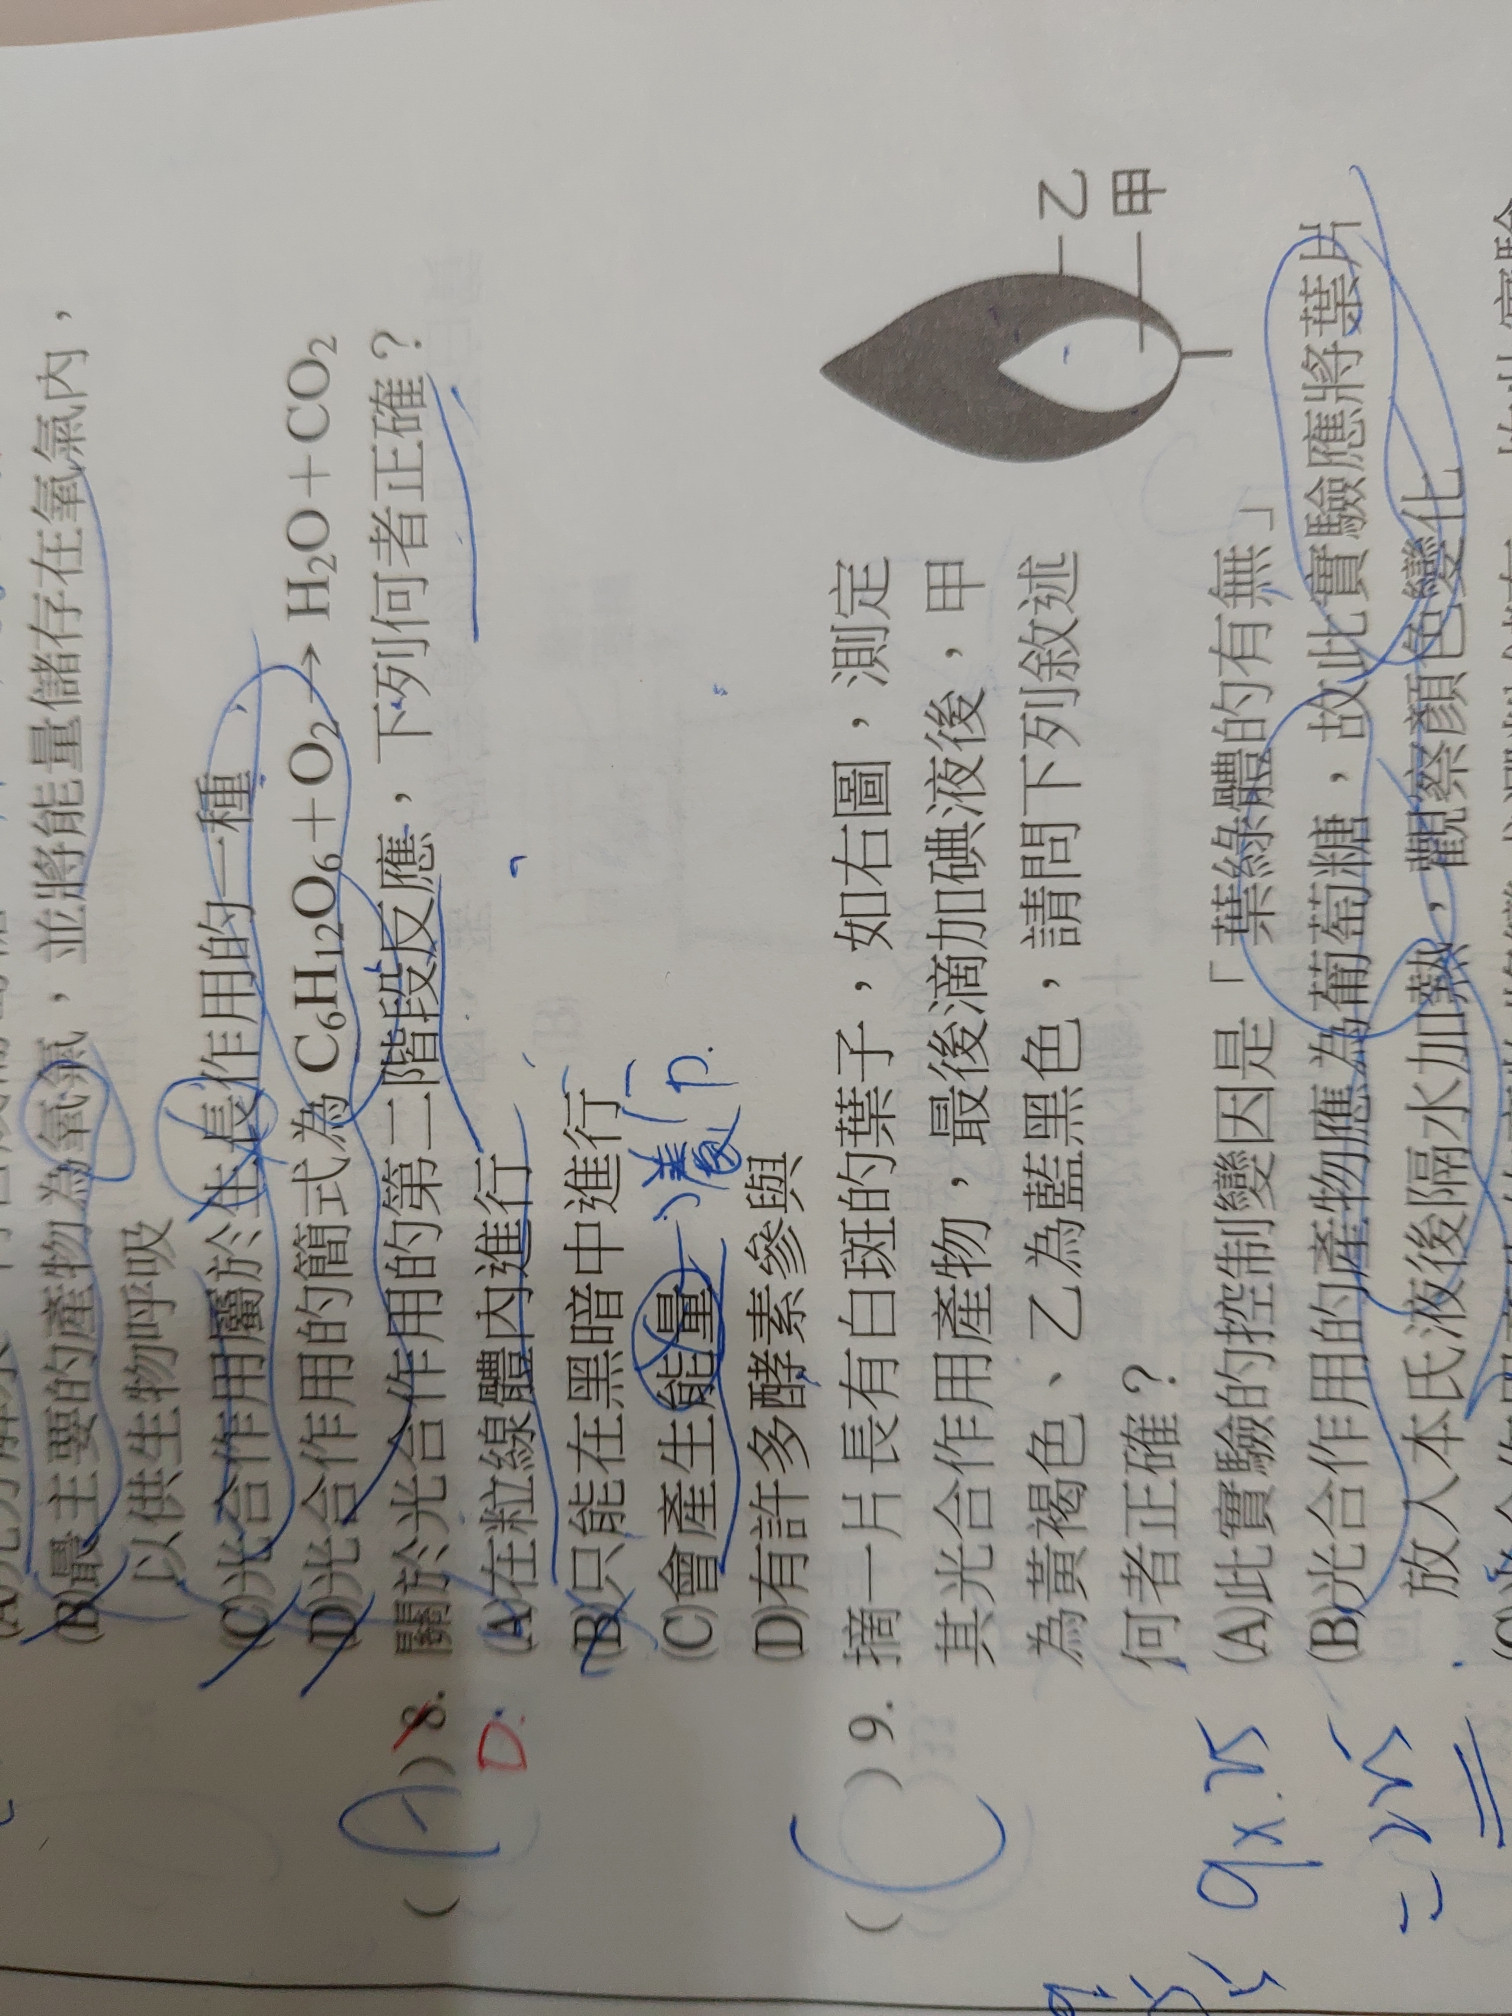 (B)最主要的產物為氧氣，並將能量儲存在氧氣內，
以供生物呼吸
(C)光合作用屬於生長作用的一種
(D)光合作用的簡式為 C₆H₁₂O₆＋O₂→H₂O＋CO₂
(A)8. 關於光合作用的第二階段反應，下列何者正確？
D.
(A)在粒線體內進行
(B)只能在黑暗中進行
(C)會產生能量
(D)有許多酵素參與
(C)9. 摘一片長有白斑的葉子，如右圖，測定
其光合作用產物，最後滴加碘液後，甲
為黃褐色、乙為藍黑色，請問下列敘述
何者正確？
乙
甲
(A)此實驗的控制變因是「葉綠體的有無」
(B)光合作用的產物應為葡萄糖，故此實驗應將葉片
放入本氏液後隔水加熱，觀察顏色變化